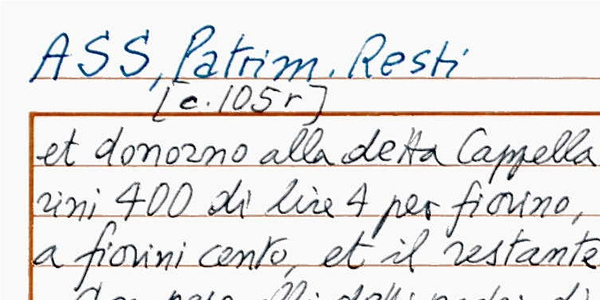 ASS, Patrim. Resti
[c. 105r]
et donorno alla detta Cappella
rini 400 di lire 4 per fiorino,
a fiorini cento, et il restante